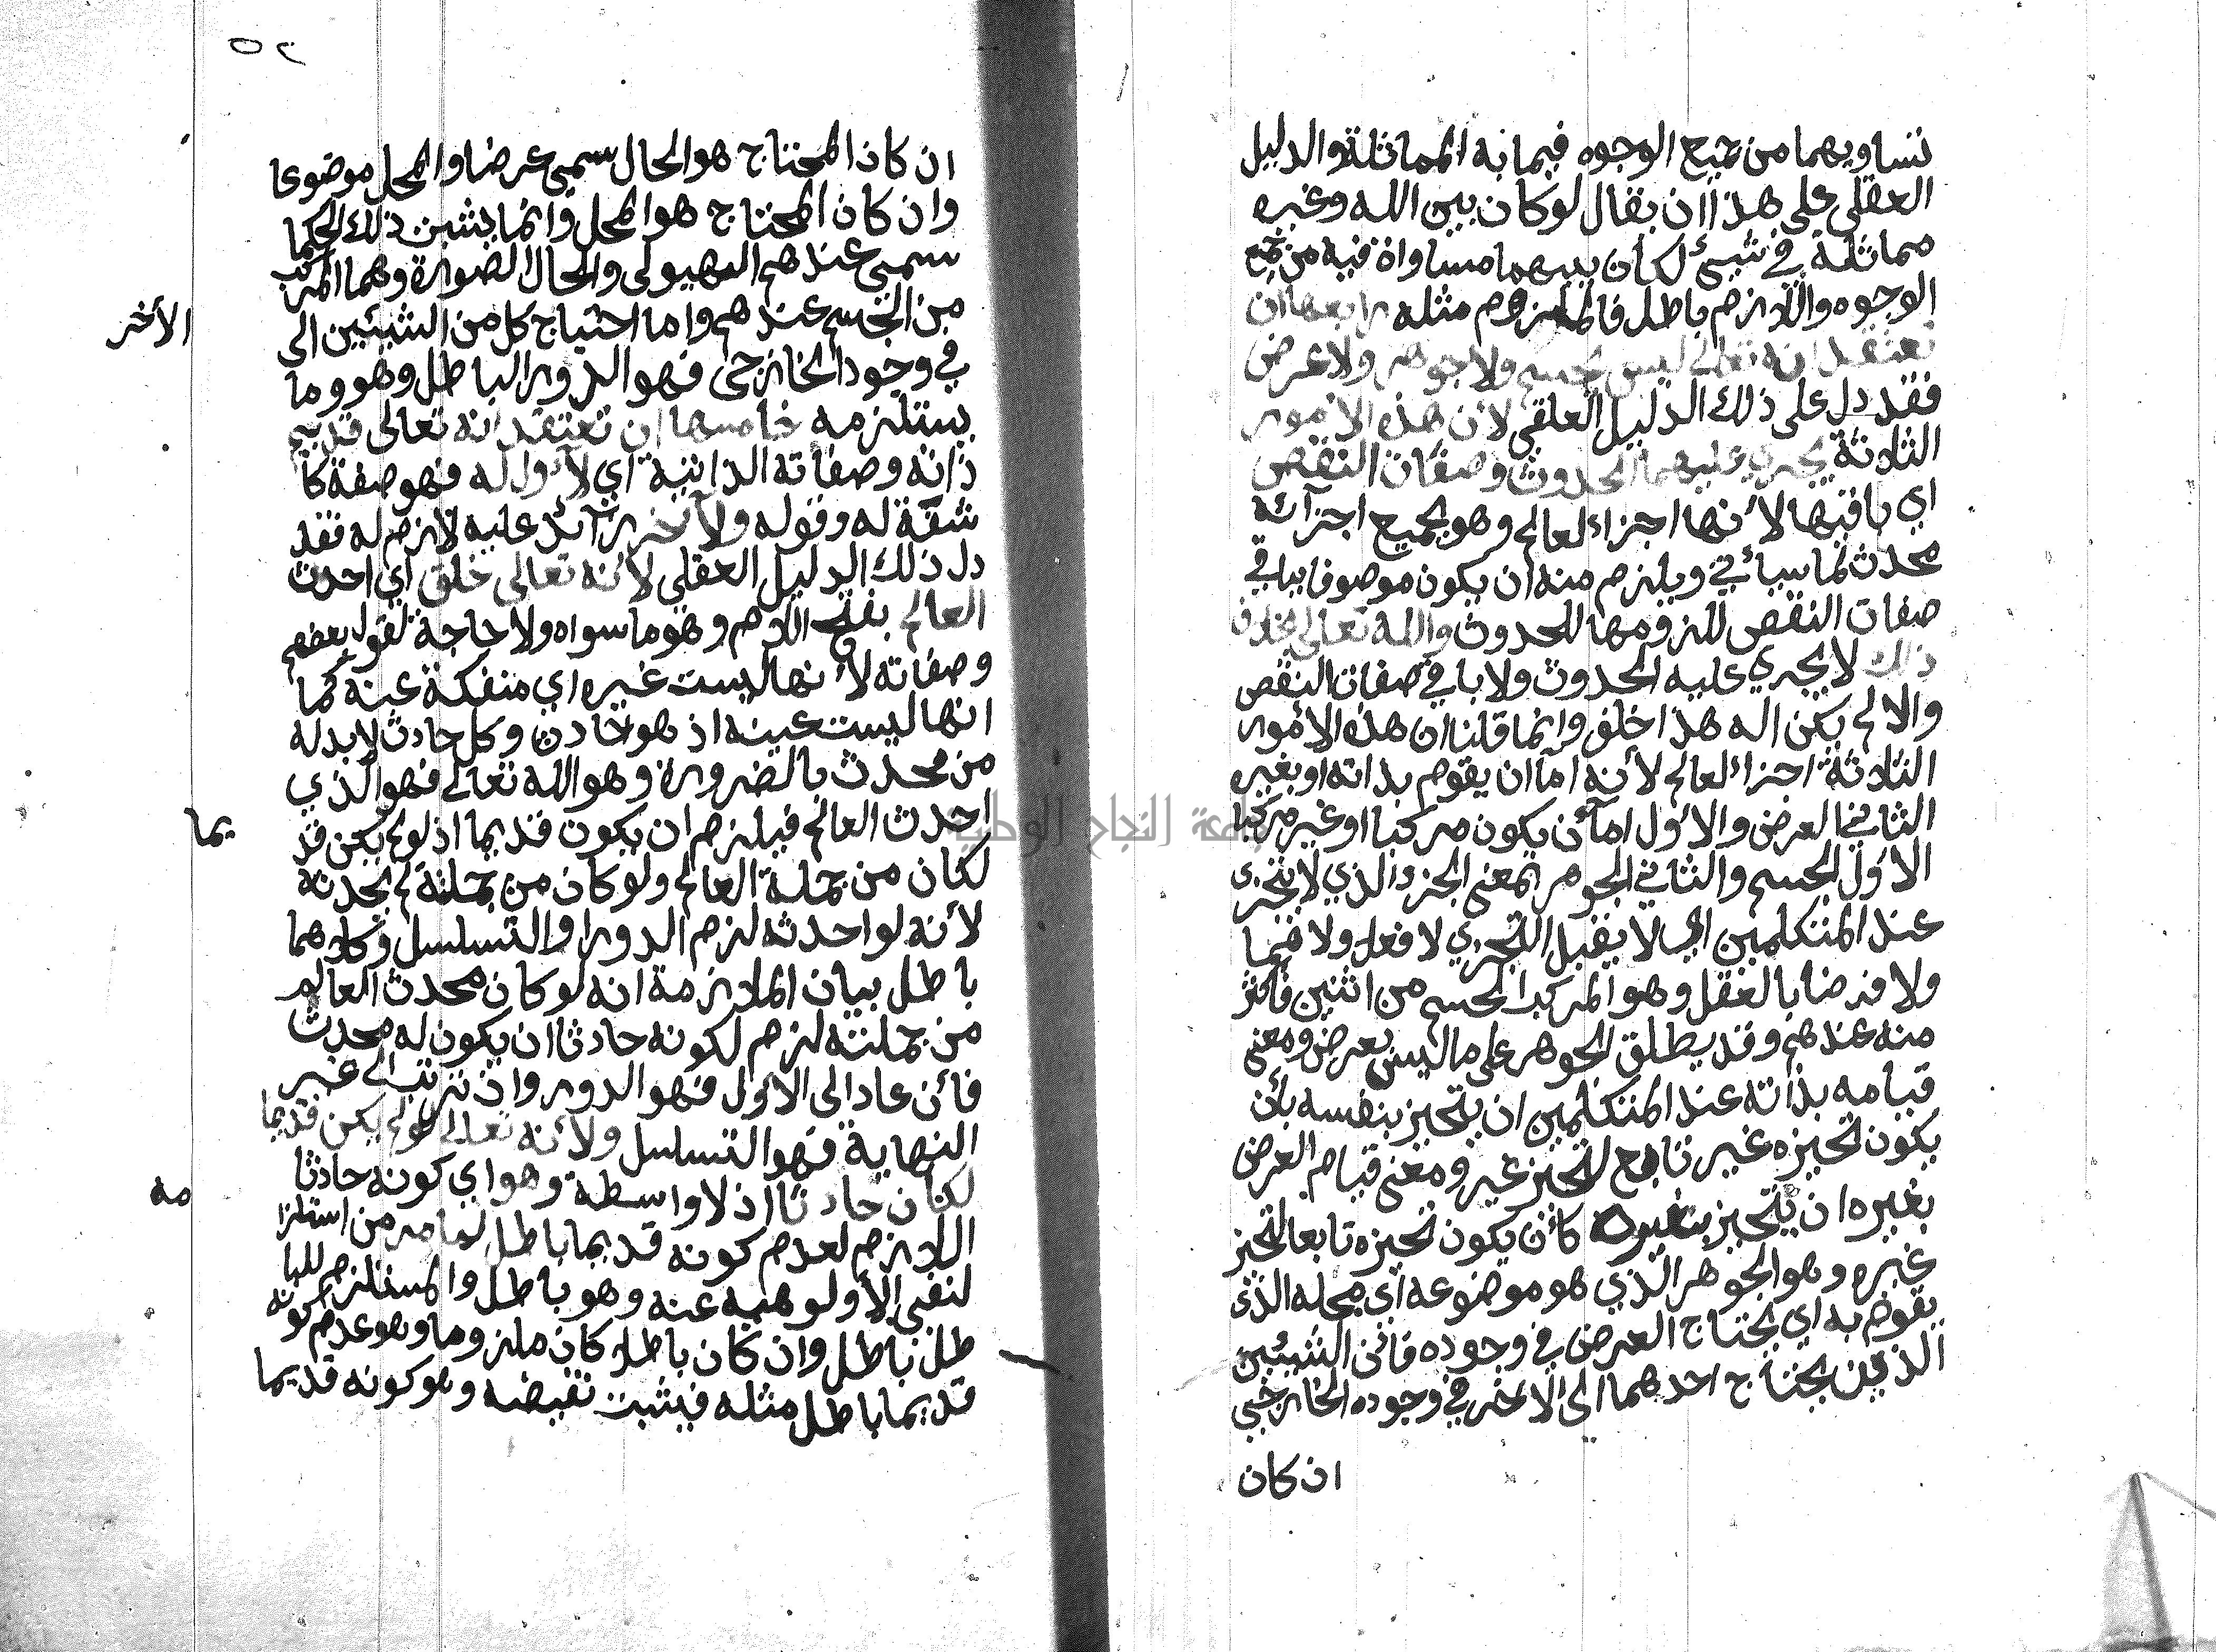 تساويهما من جميع الوجوه فيما به المماثلة والدليل
العقلي على هذا ان يقال لو كان بين الله وغيره
مماثلة في شيئ لكان بينهما مساواة فيه من جميع
الوجوه واللازم باطل فالملزوم مثله رابعها ان
تعتقد انه تعالى ليس بجسم ولا جوهر ولا عرض
فقد دل على ذلك الدليل العلقي لأن هذه الامور
الثلاثة يجري عليهما الحدوث وصفات النقص
اي باقيها لأنها اجزاء العالم وهو بجميع اجزآئه
محدث لما سيأتي ويلزم منه ان يكون موصوفا بباقي
صفات النقص للزومها للحدوث والله تعالى بخلاف
ذلك لا يجري عليه الحدوث ولا باقي صفات النقص
والا لم يكن اله هذا خلف وانما قلنا ان هذه الامور
الثلاثة اجزاء العالم لأنه اما ان يقوم بذاته او بغيره
الثاني العرض والاول اما أن يكون مركبا او غير مركبا
الاول الجسم والثاني الجوهر بمعنى الجزء الذي لا يتجزى
عند المتكلمين اي لا يقبل التجزي لا فعلا ولا فيما
ولا فرضا بالعقل وهو المركب الجسم من اثنين فأكثر
منه عندهم وقد يطلق الجوهر على ما ليس بعرض ومعنى
قيامه بذاته عند المتكلمين ان يتحيز بنفسه بأن
يكون تحيزه غير تابع لتحيز غير ومعنى قيام العرض
بغيره ان يتحيز بغيره كأن يكون تحيزه تابعا لتحيز
غيره وهو الجوهر الذي هو موضوعه اي محله الذي
يقوم به اي يحتاج العرض في وجوده فان الشيئين
الذين يحتاج احدهما الى الاخر في وجوده الخارجي
ان كان
٥٢
ان كان المحتاج هو الحال سمي عرضا والمحل موضوعا
وان كان المحتاج هو المحل وانما يثبت ذلك الحكما
سمي عندهم الهيولى والحال الصورة وهما المركب
من الجسم عندهم واما احتياج كل من الشيئين الى
الأخر
في وجود الخارجى فهو الدور الباطل وهو وما
يستلزمه خامسها ان تعتقد انه تعالى قديم
ذاته وصفاته الذاتية اي لا أول له فهو صفة كا
شفة له وقوله ولا آخر زآئد عليه لازم له فقد
دل ذلك الدليل العقلي لأنه تعالى خلق اي احدث
العالم بفتح اللام وهو ما سواه ولا حاجة لقول بعضهم
وصفاته لأنها ليست غيره اي منفكة عنه كما
انها ليست عينه اذ هو حادث وكل حادث لا بد له
من محدث بالضرورة وهو الله تعالى فهو الذي
احدث العالم فيلزم ان يكون قديما اذ لو لم يكن قد
يما
لكان من جملة العالم ولو كان من جملته لم يحدثه
لأنه لو احدثه لزم الدور او التسلسل وكلاهما
باطل بيان الملازمة انه لو كان محدث العالم
من جملته لزم لكونه حادثا ان يكون له محدث
فأن عاد الى الاول فهو الدور وان ترتب الى غير
النهاية فهو التسلسل ولأنه تعالى لو لم يكن قديما
لكان حادثا اذ لا واسطة وهو اي كونه حادثا
اللازم لعدم كونه قديما باطل لما مر من استلزا
مه
لنفي الأولوهيه عنه وهو باطل والمستلزم للبا
طل باطل وان كان باطلا كان ملزوما وهو عدم كونه
قديما باطل مثله فيثبت نقيضه وهو كونه قديما
جامعة النجاح الوطنية